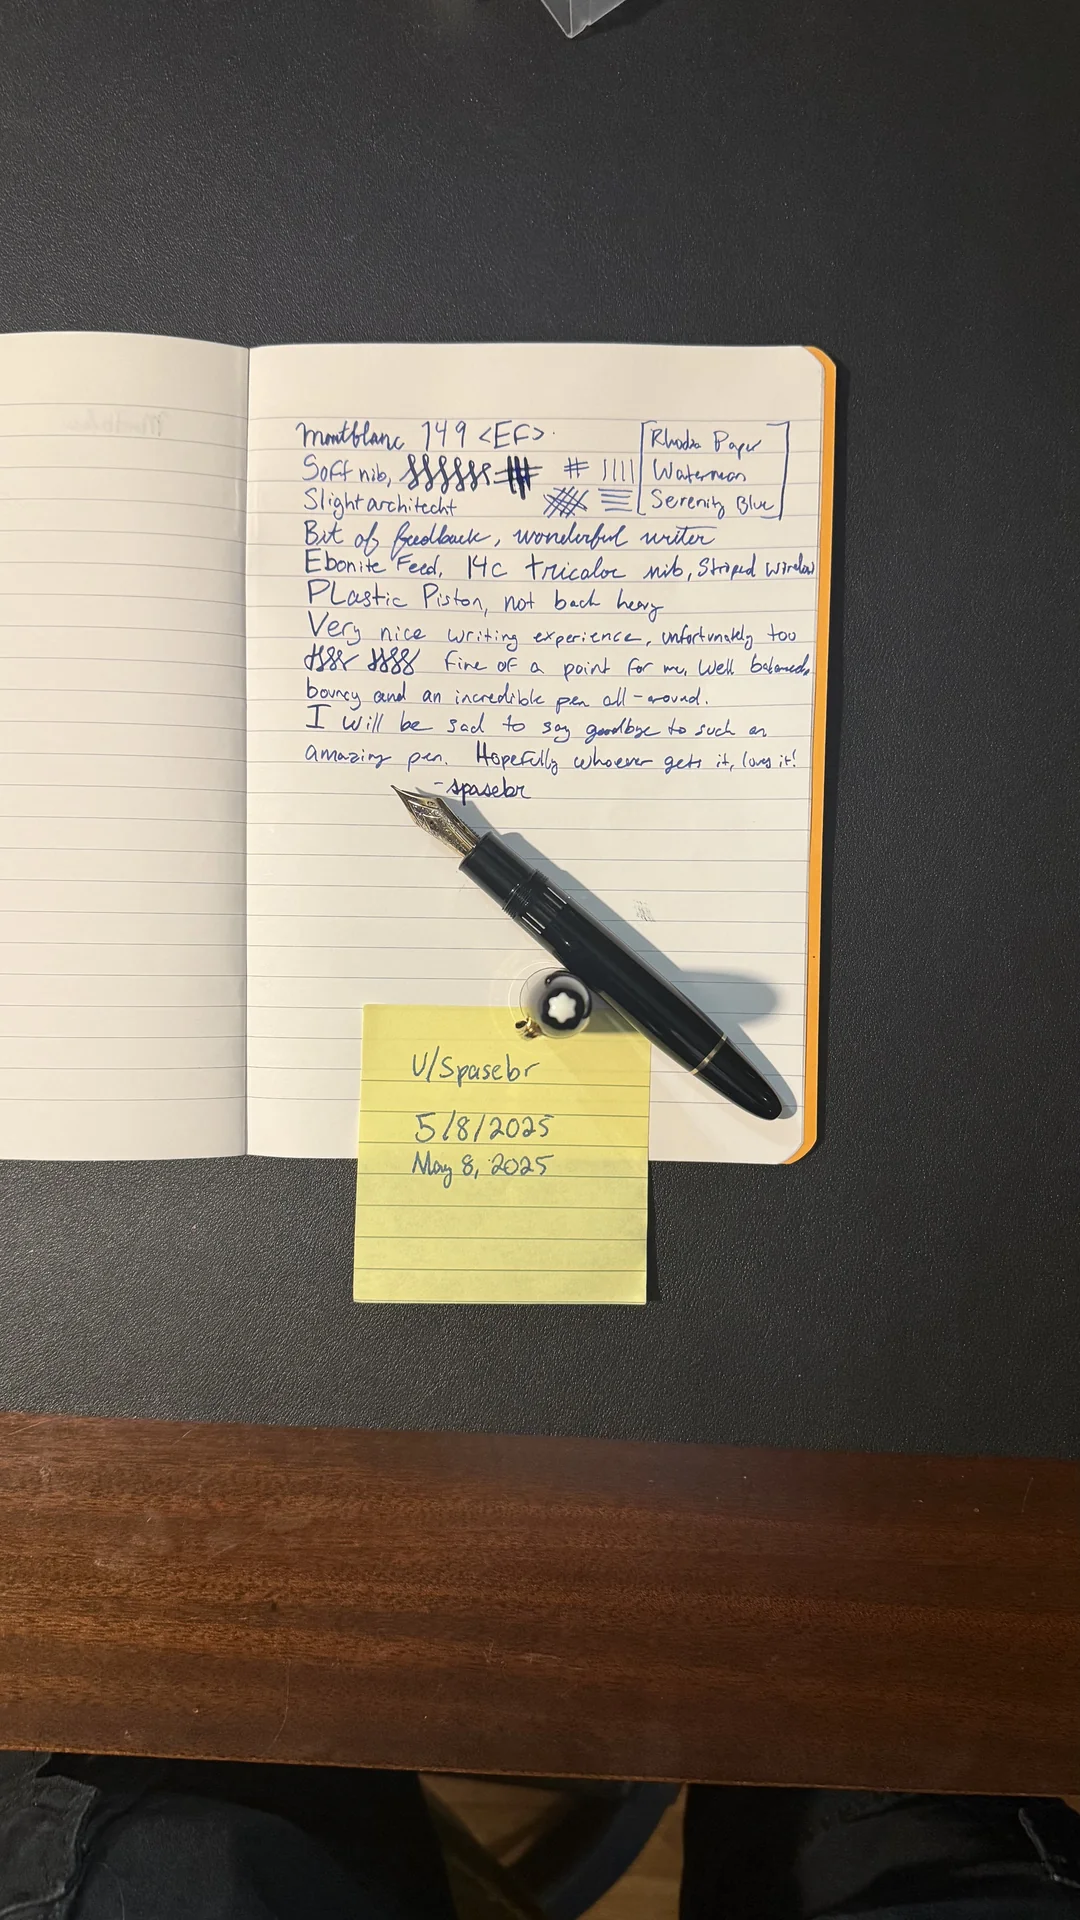 Montblanc 149 <EF>.
Soft nib,
Slight architecht
Rhodia Paper
Waterman
Serenity Blue
Bit of feedback, wonderful writer
Ebonite Feed, 14c tricolor nib, Striped window
Plastic Piston, not back heavy
Very nice writing experience, unfortunately too
fine of a point for me, well balanced,
bouncy and an incredible pen all-around.
I will be sad to say goodbye to such an
amazing pen. Hopefully whoever gets it, loves it!
-spasebr
U/Spasebr
5/8/2025
May 8, 2025